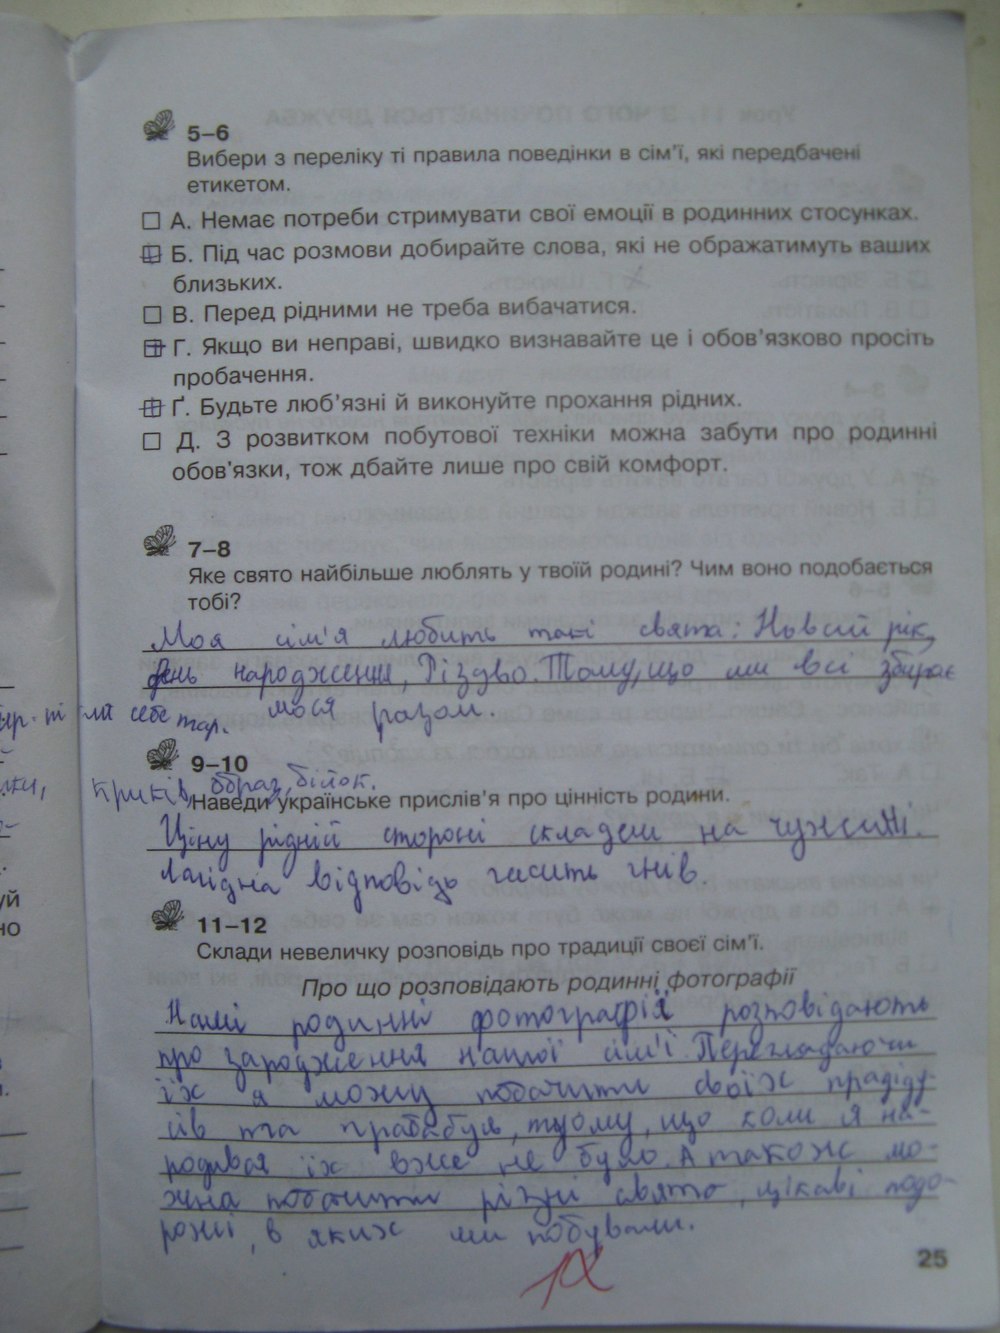 5–6
Вибери з переліку ті правила поведінки в сім'ї, які передбачені
етикетом.
А. Немає потреби стримувати свої емоції в родинних стосунках.
Б. Під час розмови добирайте слова, які не ображатимуть ваших
близьких.
В. Перед рідними не треба вибачатися.
Г. Якщо ви неправі, швидко визнавайте це і обов'язково просіть
пробачення.
Ґ. Будьте люб'язні й виконуйте прохання рідних.
Д. З розвитком побутової техніки можна забути про родинні
обов'язки, тож дбайте лише про свій комфорт.
7–8
Яке свято найбільше люблять у твоїй родині? Чим воно подобається
тобі?
Моя сім'я любить такі свята: Новий рік,
День народження, Різдво. Тому, що ми всі збирає
мося разом.
9–10
криків, образ, бійок.
Наведи українське прислів'я про цінність родини.
Ціну рідній стороні складеш на чужині.
Лагідна відповідь гасить гнів
11–12
Склади невеличку розповідь про традиції своєї сім'ї.
Про що розповідають родинні фотографії
Намі родинні фотографії розповідають
про зародження нашої сім'ї. Переглядаючи
їх я можу побачити своїх прадіду-
ів та прабабуь, тому, що коли я на-
родився їх вже не було. А також мо-
жна побачити різні свята, цікаві подо-
рожі, в яких ми побували.
12
25